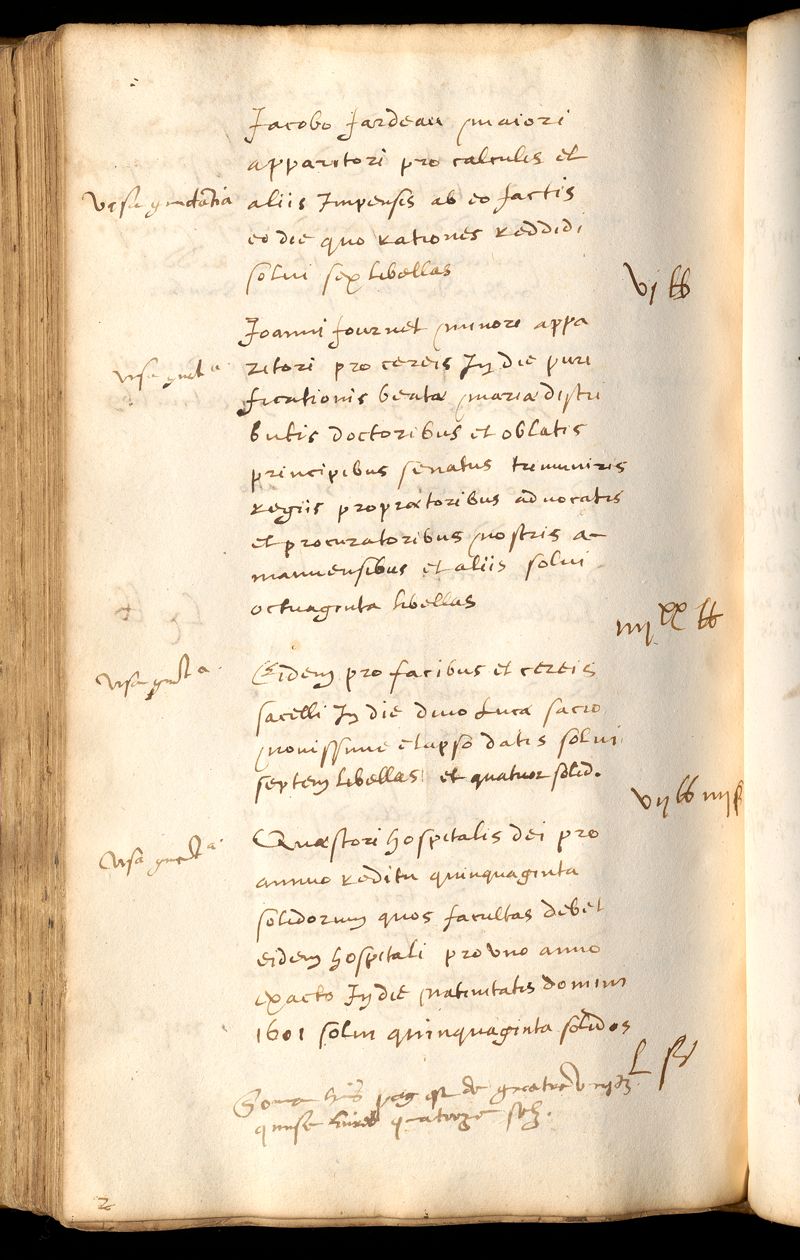 Jacobo Jardeau maiori
apparitori pro calculis et
aliis Impensis ab eo factis
eo die quo rationes reddidi
solui sex libellas
vj ɫɫ
Joanni fournet minori appa
ritori pro cereis In die puri
ficationis beatæ mariæ distri
butis doctoribus et oblatis
principibus senatus triumviris
regiis proprætoribus advocatis
et procuratoribus nostris a-
manuensibus et aliis solui
octuaginta libellas
iiij xx ɫɫ
Eidem pro facibus et cereis
sacelli In die divo Lucæ sacro
novissime elapso datis solui
septem libellas et quatuor solid.
vij ɫɫ iiij s
Quæstori hospitalis dei pro
annuo reditu quinquaginta
solidorum quos facultas debet
eidem hospitali pro uno anno
exacto In die nativitatis domini
1601 solui quinquaginta solidos
L s
quinse livres quatorze solz.
2